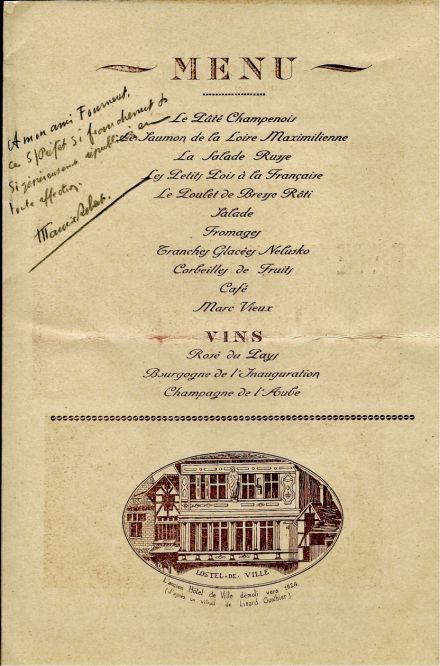 MENU
A mon ami Fourneret,
ce S/Préfet si franchement et
si généreusement républicain
toute affection.
Le Pâté Champenois
Le Saumon de la Loire Maximilienne
La Salade Russe
Les Petits Pois à la Française
Le Poulet de Bresse Rôti
Salade
Fromages
Tranches Glacées Nelusko
Corbeilles de Fruits
Café
Marc Vieux
VINS
Rosé du Pays
Bourgogne de l'Inauguration
Champagne de l'Aube
LOSTEL-DE-VILLE
L'ancien Hôtel de Ville démoli vers 1624
(d'après un vitrail de Linard Gonthier)